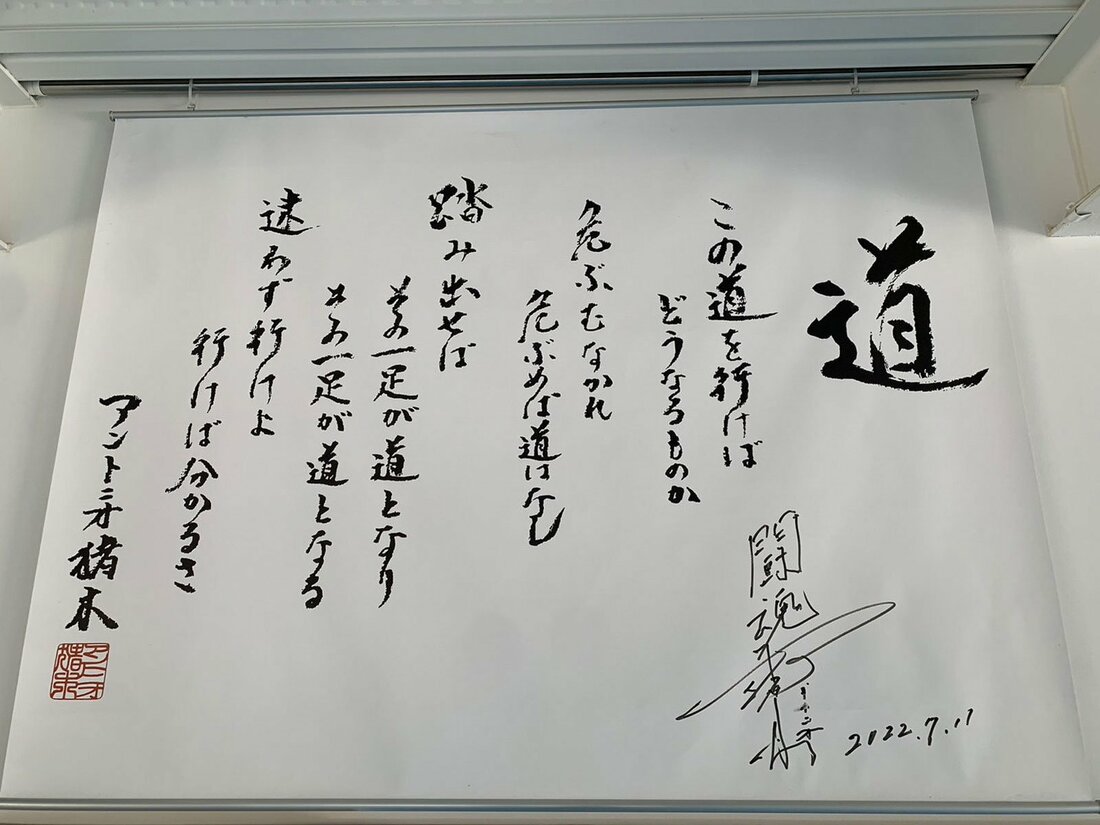 道
この道を行けば
どうなるものか
危ぶむなかれ
危ぶめば道はなし
踏み出せば
その一足が道となり
その一足が道となる
迷わず行けよ
行けば分かるさ
アントニオ猪木
闘魂
2022.7.11